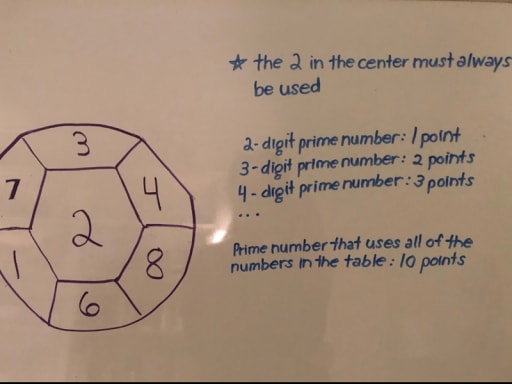 ☆ the 2 in the center must always
be used
2-digit prime number: 1 point
3-digit prime number: 2 points
4-digit prime number: 3 points
...
Prime number that uses all of the
numbers in the table: 10 points
3
7
4
2
1
8
6